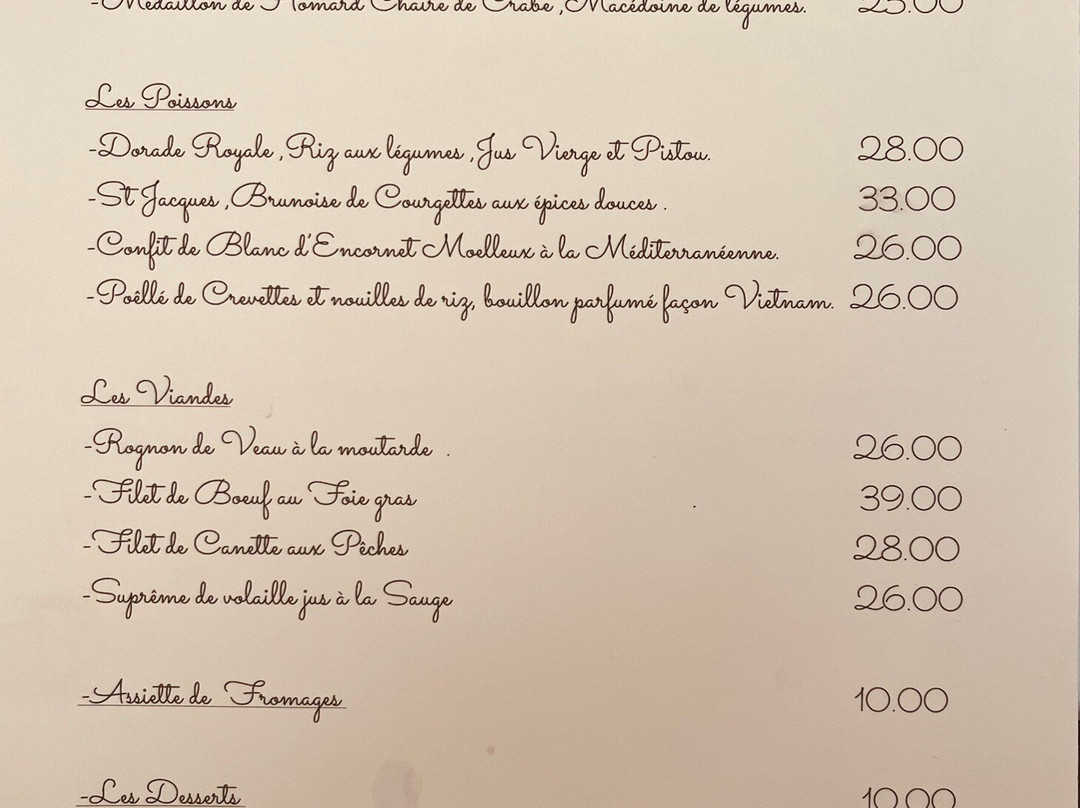 -Médaillon de Homard Chaire de Crabe ,Macédoine de légumes. 25.00
Les Poissons
-Dorade Royale ,Riz aux légumes ,Jus Vierge et Pistou. 28.00
-St Jacques ,Brunoise de Courgettes aux épices douces . 33.00
-Confit de Blanc d'Encornet Moelleux à la Méditerranéenne. 26.00
-Poêllé de Crevettes et nouilles de riz, bouillon parfumé façon Vietnam. 26.00
Les Viandes
-Rognon de Veau à la moutarde . 26.00
-Filet de Boeuf au Foie gras 39.00
-Filet de Canette aux Pêches 28.00
-Suprême de volaille jus à la Sauge 26.00
-Assiette de Fromages 10.00
-Les Desserts 10.00